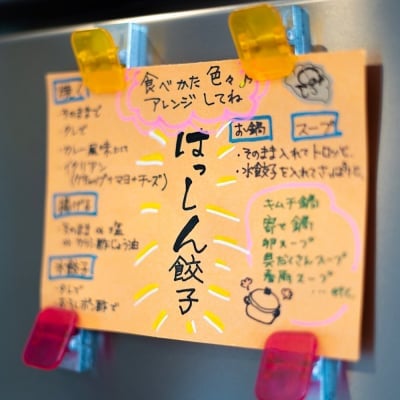 食べかた色々♪
アレンジしてね
はっしん餃子
焼く
・そのままで
・タレで
・カレー風味
・イタリアン
(ケチャップ+マヨ+チーズ)
揚げる
・そのまま or 塩
水餃子
・タレで
お鍋
スープ
・そのまま入れてトロッと。
・水餃子を入れてさっぱりと。
キムチ鍋
寄せ鍋
卵スープ
具だくさんスープ
春雨スープ